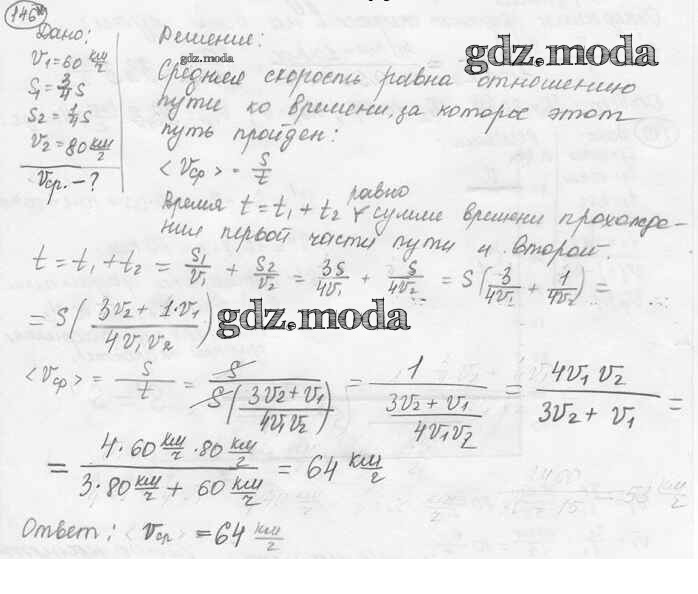 146
Дано:
V₁=60 км/ч
S₁=3/4 S
S₂=1/4 S
V₂=80 км/ч
Vср.-?
Решение:
gdz.moda
gdz.moda
Средняя скорость равна отношению
пути ко времени, за которое этот
путь пройден:
<Vср> = S/t
Время t = t₁ + t₂ равно сумме времени прохожде-
ния первой части пути и второй.
t = t₁ + t₂ = S₁/V₁ + S₂/V₂ = 3S/4V₁ + S/4V₂ = S(3/4V₁ + 1/4V₂) =
= S(3V₂ + 1·V₁/4V₁V₂)
gdz.moda
<Vср> = S/t = S/S(3V₂+V₁/4V₁V₂) = 1/(3V₂+V₁/4V₁V₂) = 4V₁V₂/3V₂+V₁ =
= 4·60 км/ч·80 км/ч / 3·80 км/ч + 60 км/ч = 64 км/ч
Ответ: <Vср> = 64 км/ч